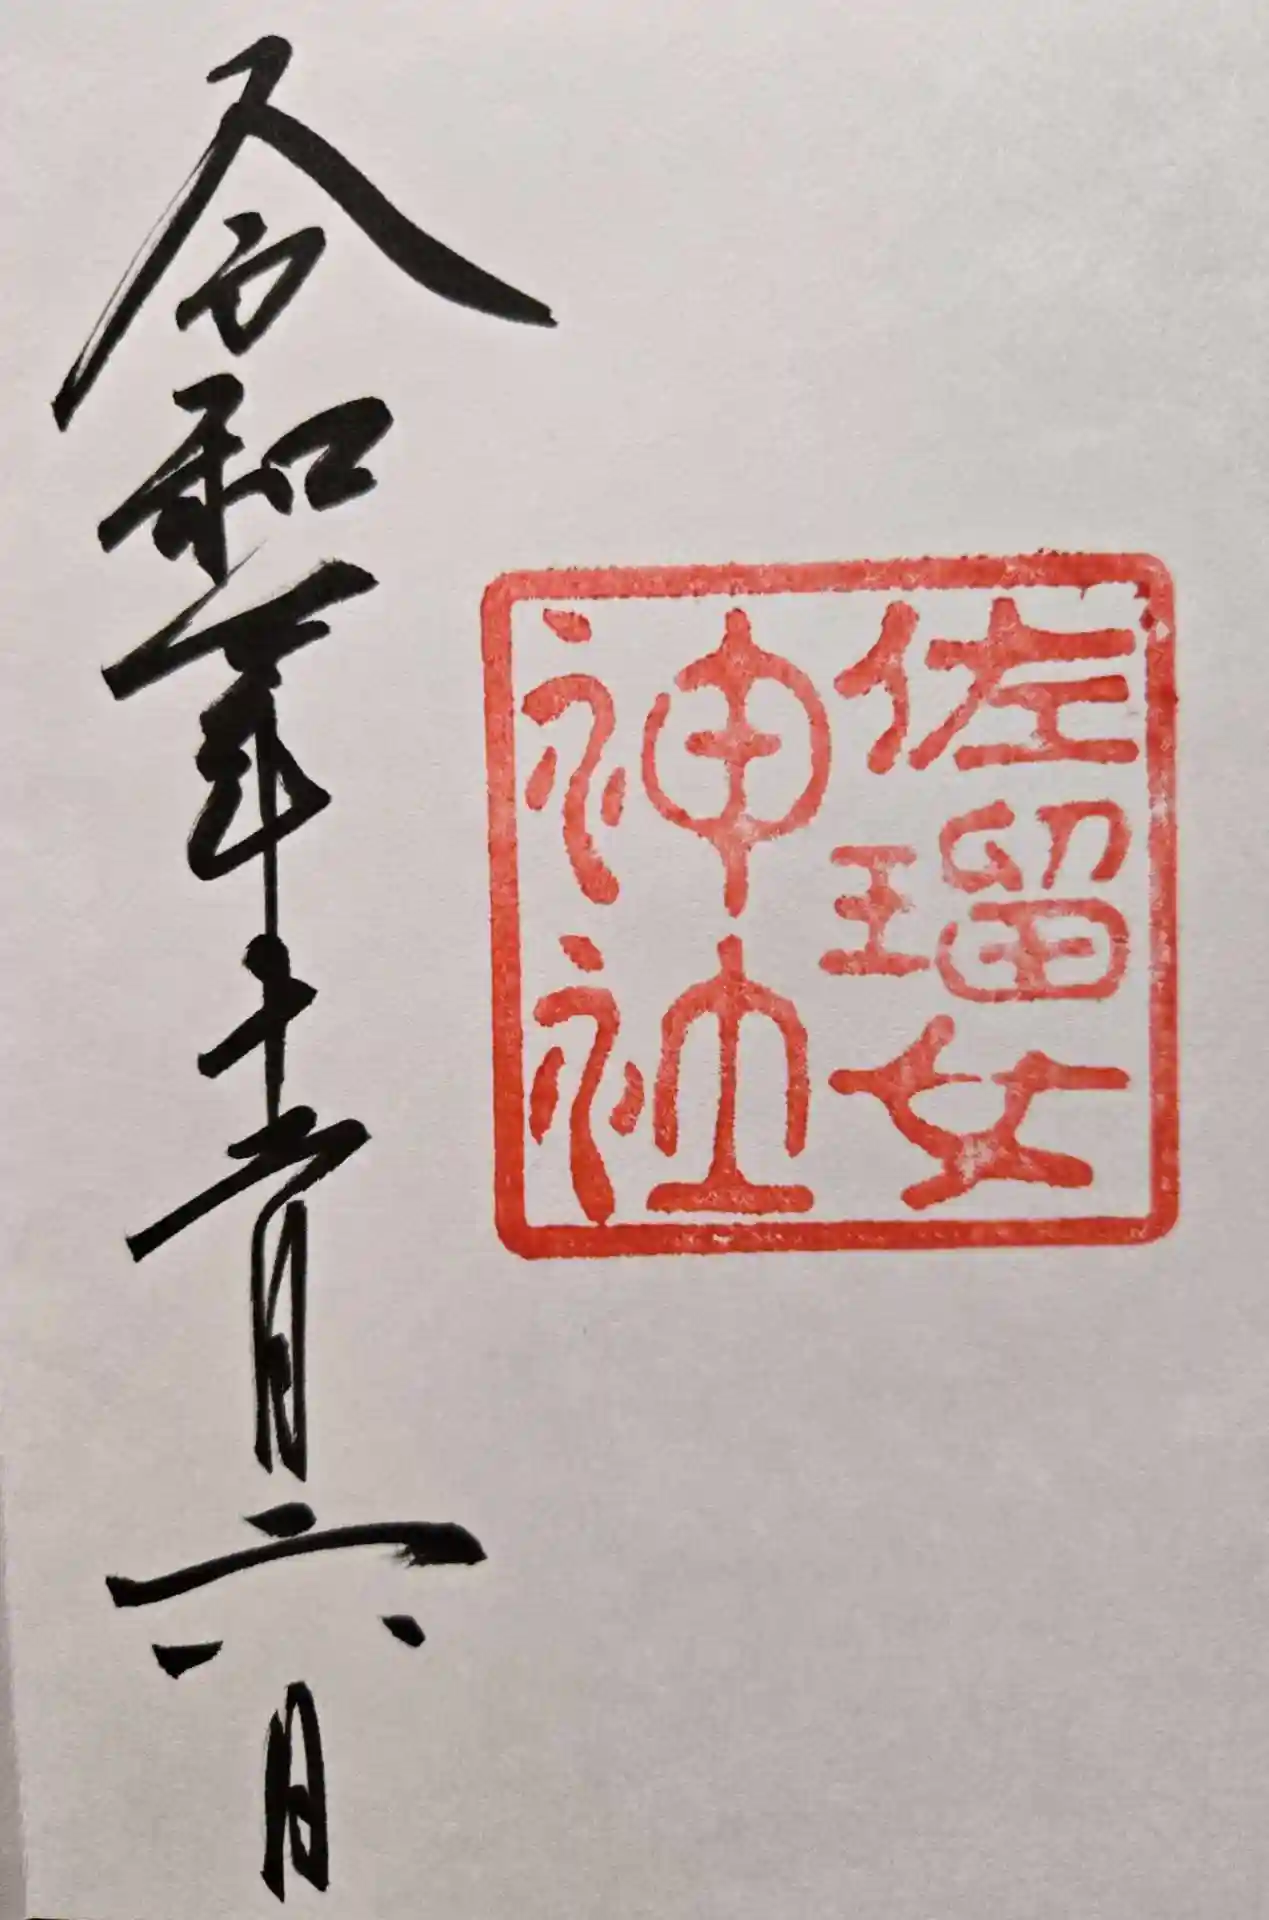 佐瑠女
神社
令和年十月六日